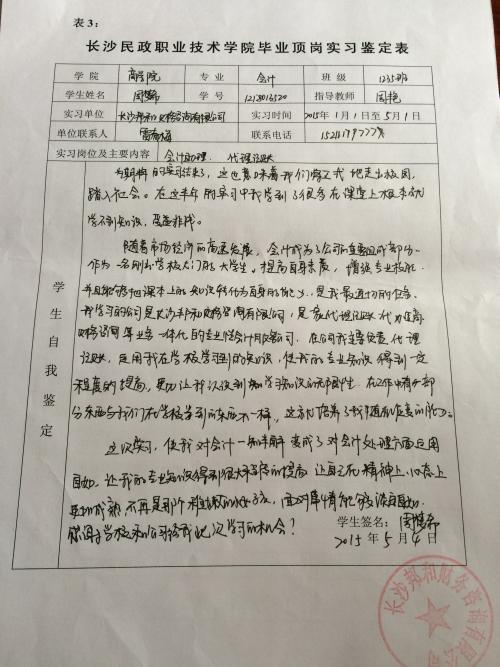 表 3：
长沙民政职业技术学院毕业顶岗实习鉴定表
学 院 商学院 专 业 会计 班 级 1235班
学生姓名 周 学 号 1218013520 指导教师 周艳
实习单位 长沙邦和财务咨询有限公司 实习时间 2015年1月1日至5月1日
单位联系人 联系电话
实习岗位及主要内容 会计助理、代理记账
的实习结束了，这也意味着我们将正式地走出校园，
踏入社会。在这半年的实习中我学到了很多在课堂上根本就
学不到知识，受益非浅。
随着市场经济的高速发展，会计成为了公司的重要组成部分，
作为一名刚出学校大门的大学生。提高自身素质，增强专业技能，
并且能够把课本上的知识转化为自身的能力，是我最迫切的任务。
我学习的公司是长沙邦和财务咨询有限公司，是家代理记账
财务咨询等业务一体化的专业性会计服务公司。在公司我主要负责代理
记账，运用我在学校学习到的知识，使我的专业知识得到一定
程度的提高，更加让我认识到知识的重要性。在工作中有一部
分东西与我们在学校学到的东西不一样，这就培养了我随机应变的能力。
这次实习，使我对会计一知半解变成了对会计处理方面运用
自如，让我的专业知识得到很大的提高，让自己在精神上、心态上
更加成熟，不再是那个的女孩，面对事情能够泰然自如。
感谢学校和公司给我此次学习的机会！
学生签名：周
2015 年 5 月 4 日
学生自我鉴定
长沙邦和财务咨询有限公司